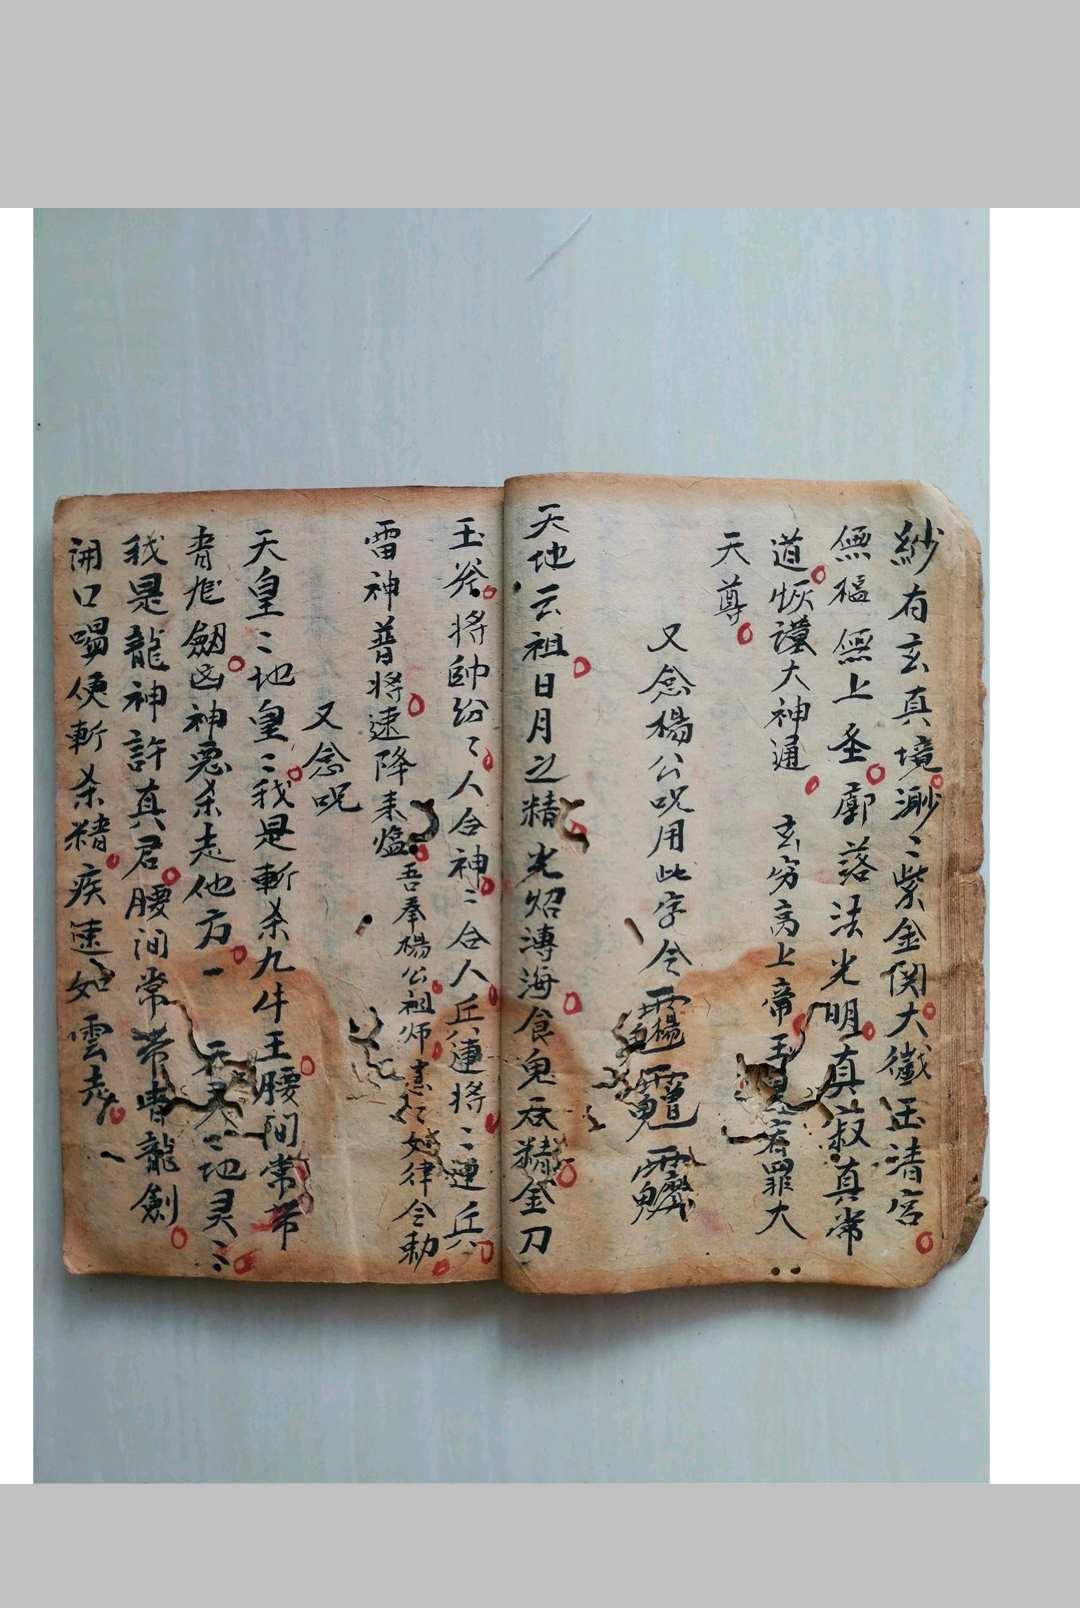 紗有玄真境渺〻紫金関大織玉清宮
無極無上圣廓落法光明真寂真常
道恢謨大神通 玄穷高上帝玉皇宥罪大
天尊
又念楊公咒用此字令
天地云祖日月之精光炤溥海食鬼吞精金刀
玉斧將帥紛〻人合神〻合人兵連將〻連兵
雷神普將速降来臨吾奉楊公祖师急〻如律令勅
又念呪
天皇〻地皇〻我是斬杀九牛王腰间常带
青龙劔凶神恶杀走他方 天灵〻地灵〻
我是龍神許真君腰间常带青龍劍
開口喝便斬杀精疾速如雲走